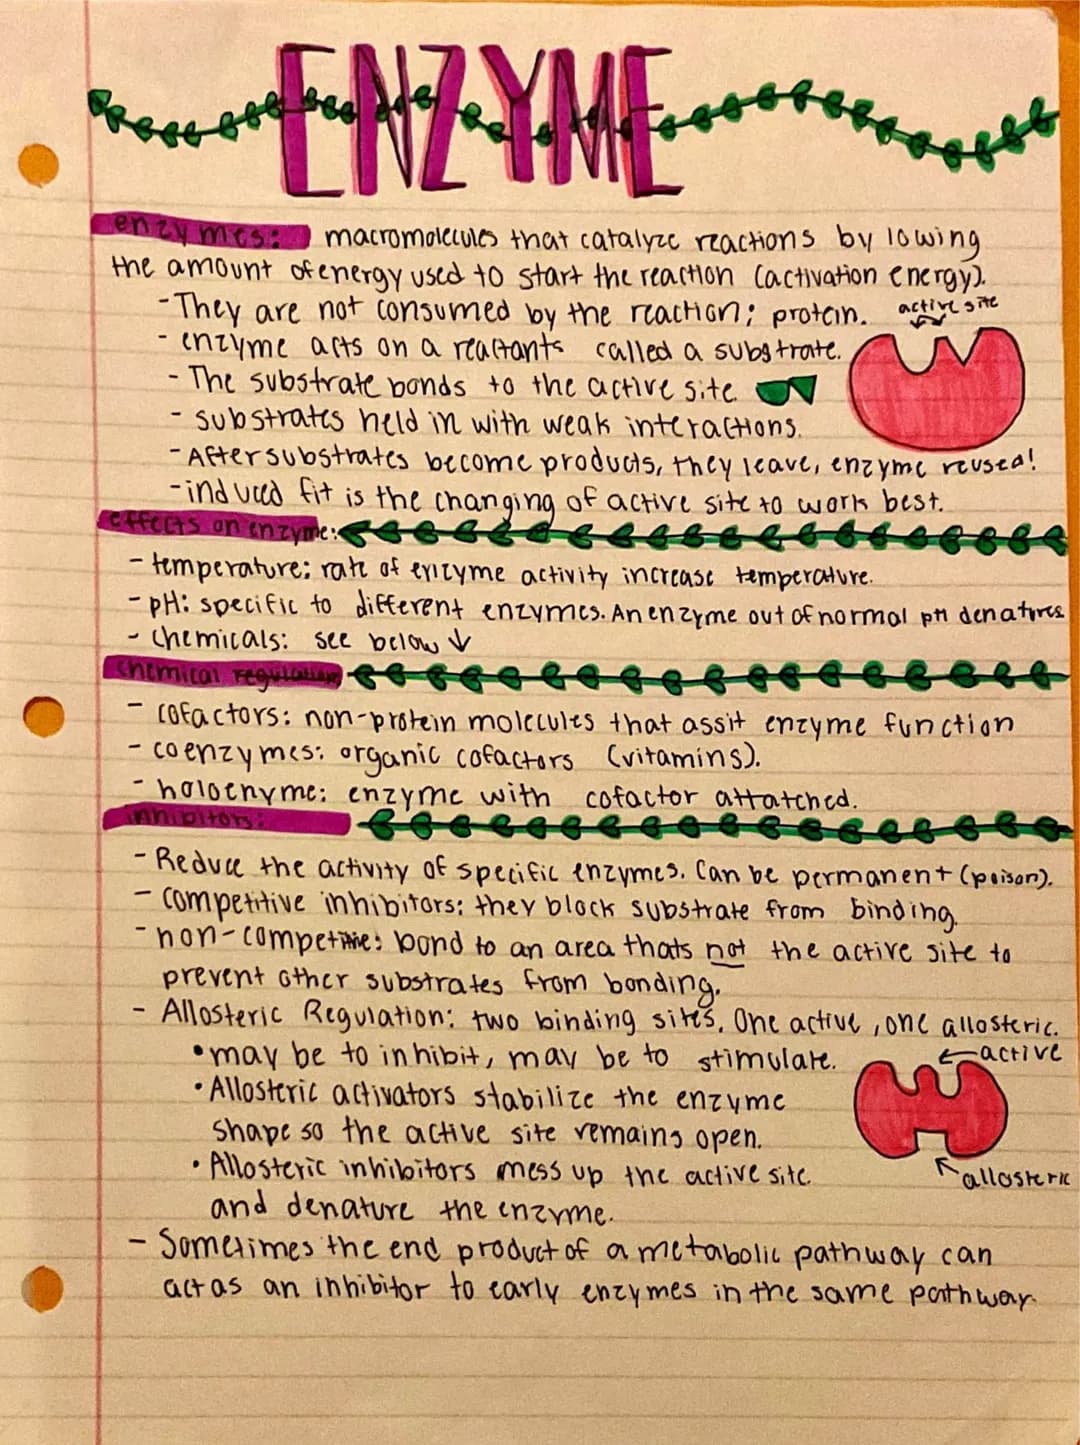 ENZYME
enzymes: macromolecules that catalyze reactions by lowing
the amount of energy used to start the reaction (activation energy).
- They are not consumed by the reaction; protein.
active site
- enzyme acts on a reactants called a substrate.
- The substrate bonds to the active site
- substrates held in with weak interactions.
- After substrates become products, they leave, enzyme reused!
- induced fit is the changing of active site to work best.
effects on enzyme:
- temperature: rate of enzyme activity increase temperature.
- pH: specific to different enzymes. An enzyme out of normal pH denatures
- chemicals: see below ↓
chemical regulation
- cofactors: non-protein molecules that assit enzyme function
- coenzymes: organic cofactors (vitamins).
- holoenyme: enzyme with cofactor attatched.
inhibitors:
- Reduce the activity of specific enzymes. Can be permanent (poison).
- competitive inhibitors: they block substrate from binding.
- non-competitive: bond to an area thats not the active site to
prevent other substrates from bonding.
- Allosteric Regulation: two binding sites. One active, one allosteric.
• may be to inhibit, may be to stimulate.
← active
• Allosteric activators stabilize the enzyme
shape so the active site remains open.
• Allosteric inhibitors mess up the active site
allosteric
and denature the enzyme.
- Sometimes the end product of a metabolic pathway can
act as an inhibitor to early enzymes in the same pathway.